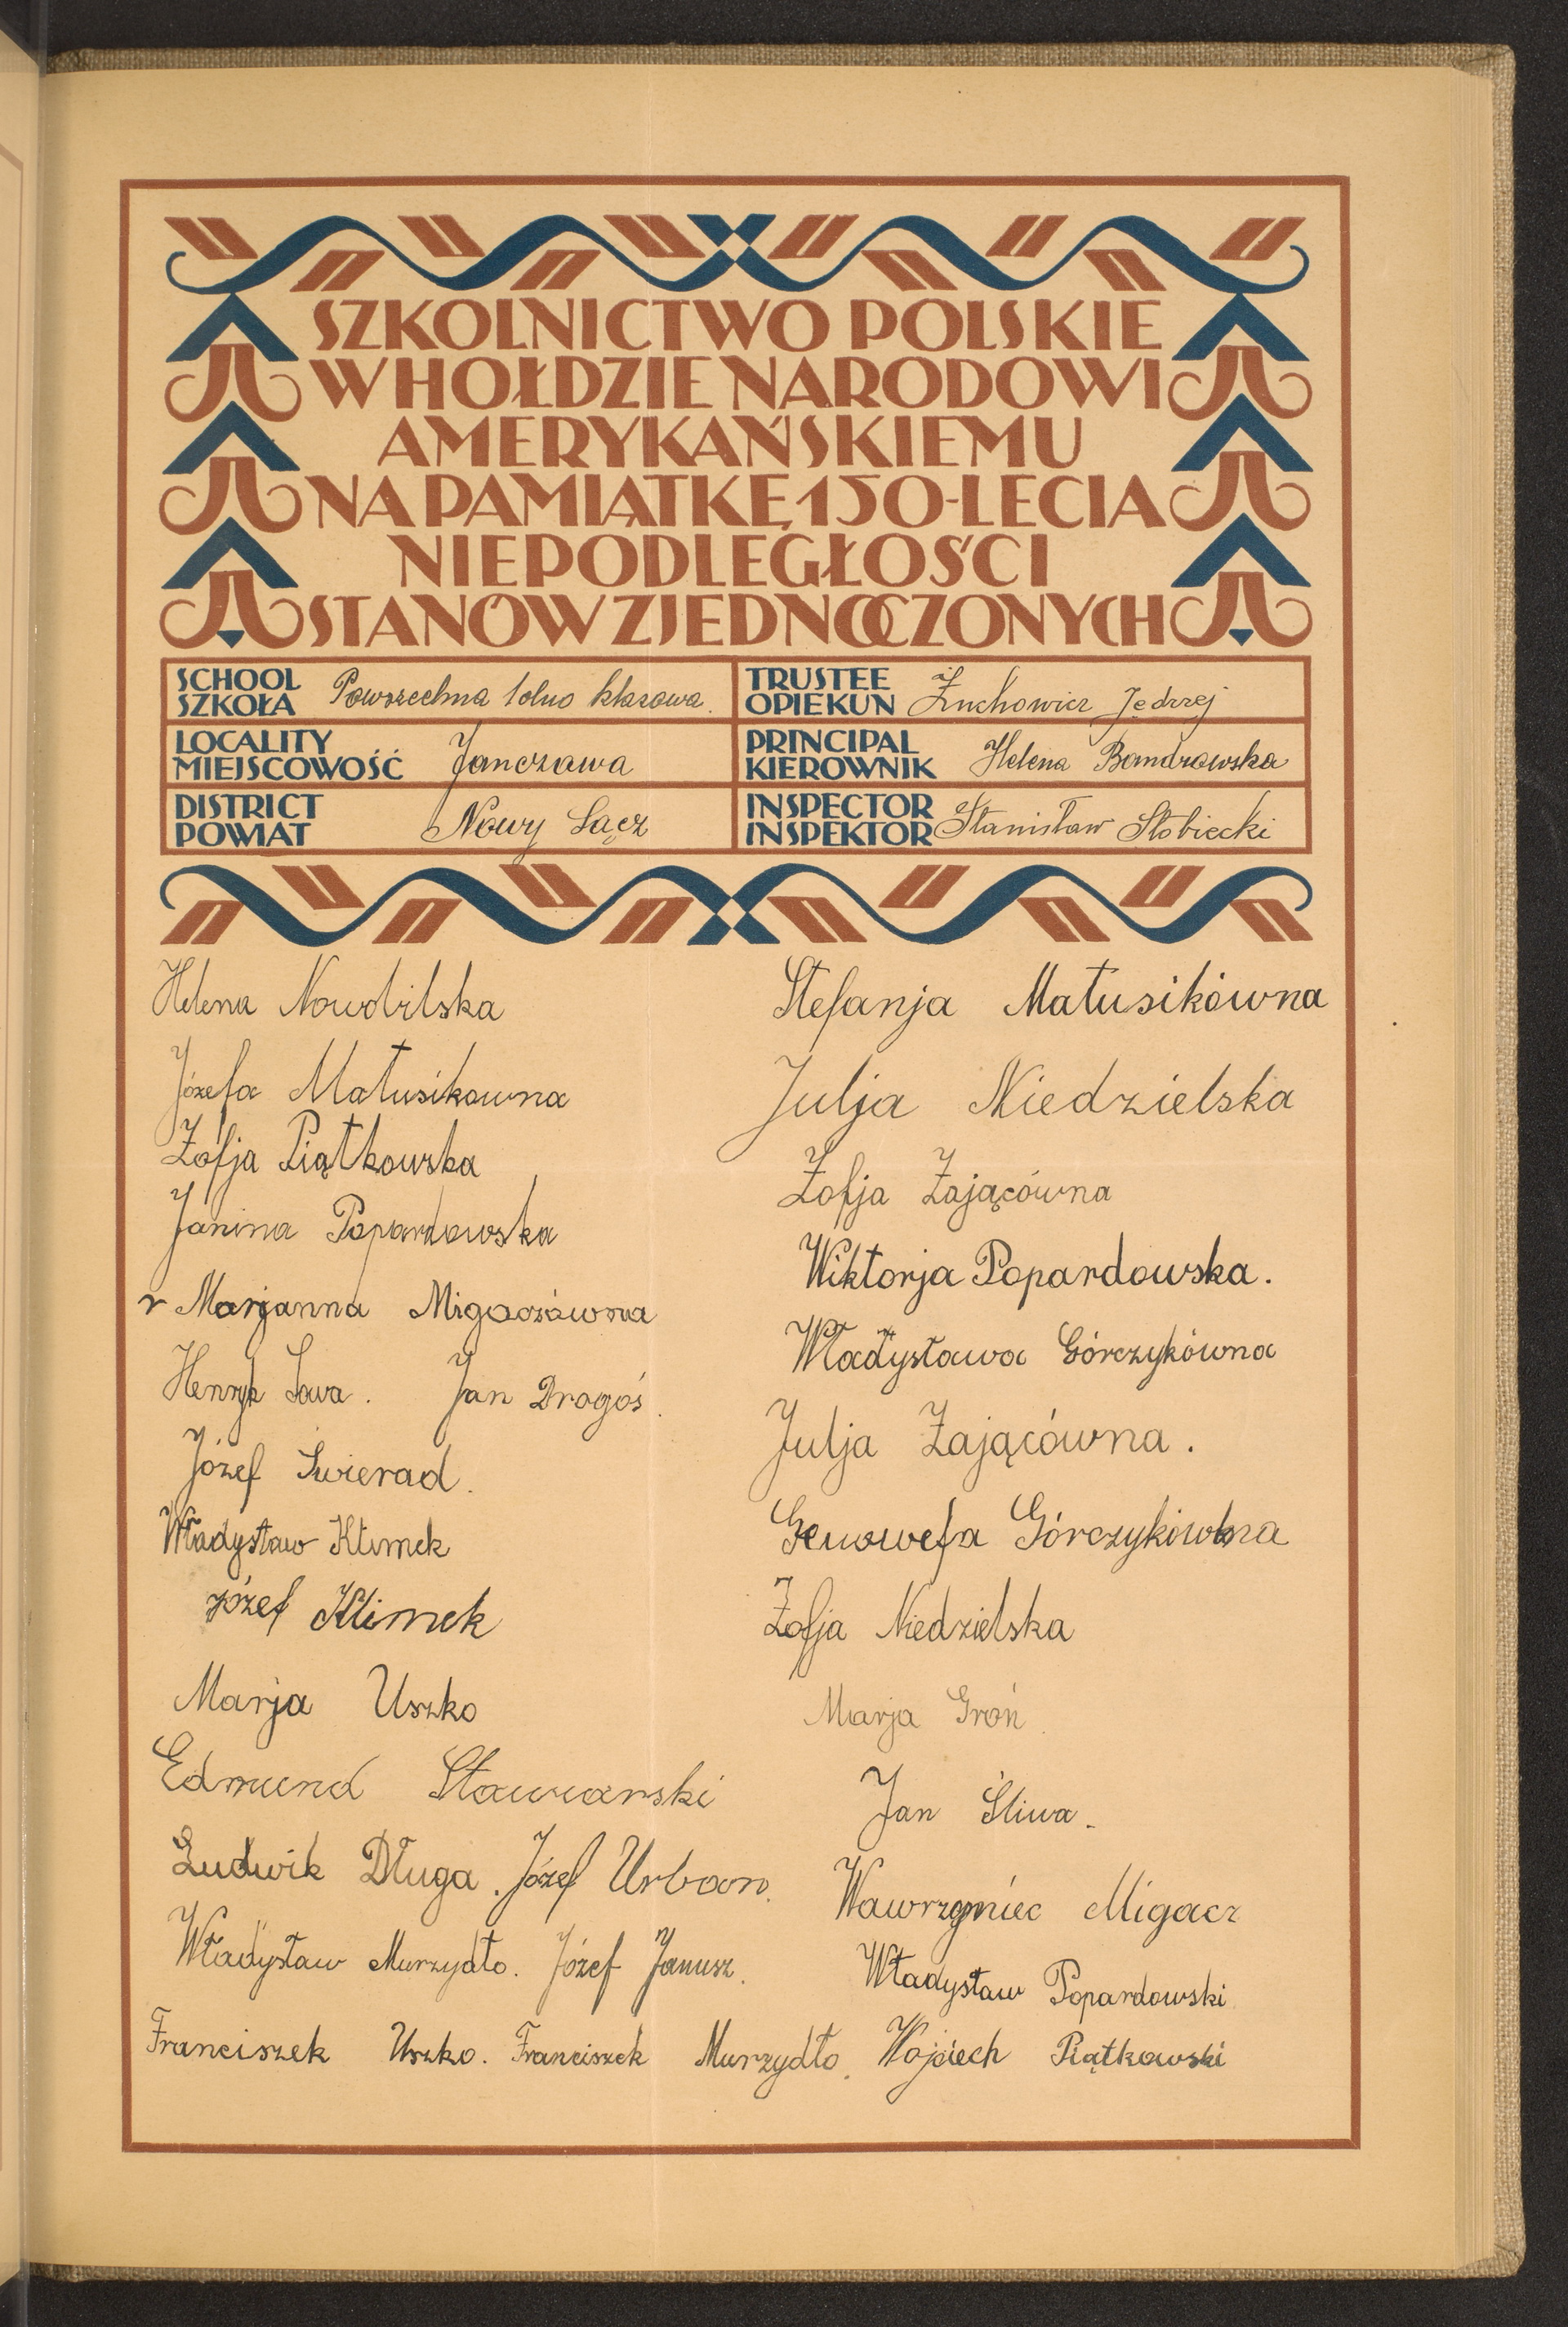 SZKOLNICTWO POLSKIE
W HOŁDZIE NARODOWI
AMERYKAŃSKIEMU
NA PAMIĄTKĘ 150-LECIA
NIEPODLEGŁOŚCI
STANÓW ZJEDNOCZONYCH
SCHOOL
SZKOŁA Powszechna 1dno klasowa.
TRUSTEE
OPIEKUN Żuchowicz Jędrzej
LOCALITY
MIEJSCOWOŚĆ Janczawa
PRINCIPAL
KIEROWNIK Helena Bandrowska
DISTRICT
POWIAT Nowy Sącz
INSPECTOR
INSPEKTOR Stanisław Słobiecki
Helena Nowobilska
Józefa Matusikowna
Zofja Piątkowska
Janina Popardowska
Marjanna Migaczówna
Henryk Sowa. Jan Drogoś.
Józef Świerad.
Władysław Klimek
Józef Klimek
Marja Uszko
Edmund Stawiarski
Ludwik Długa. Józef Urban.
Władysław Murzydło. Józef Janusz.
Franciszek Uszko. Franciszek Murzydło.
Stefanja Matusikówna
Julja Niedzielska
Zofja Zającówna
Wiktorja Popardowska.
Władysława Górczykówna
Julja Zającówna.
Genowefa Górczykówna
Zofja Niedzielska
Marja Groń
Jan Śliwa.
Wawrzyniec Migacz
Władysław Popardowski
Wojciech Piątkowski